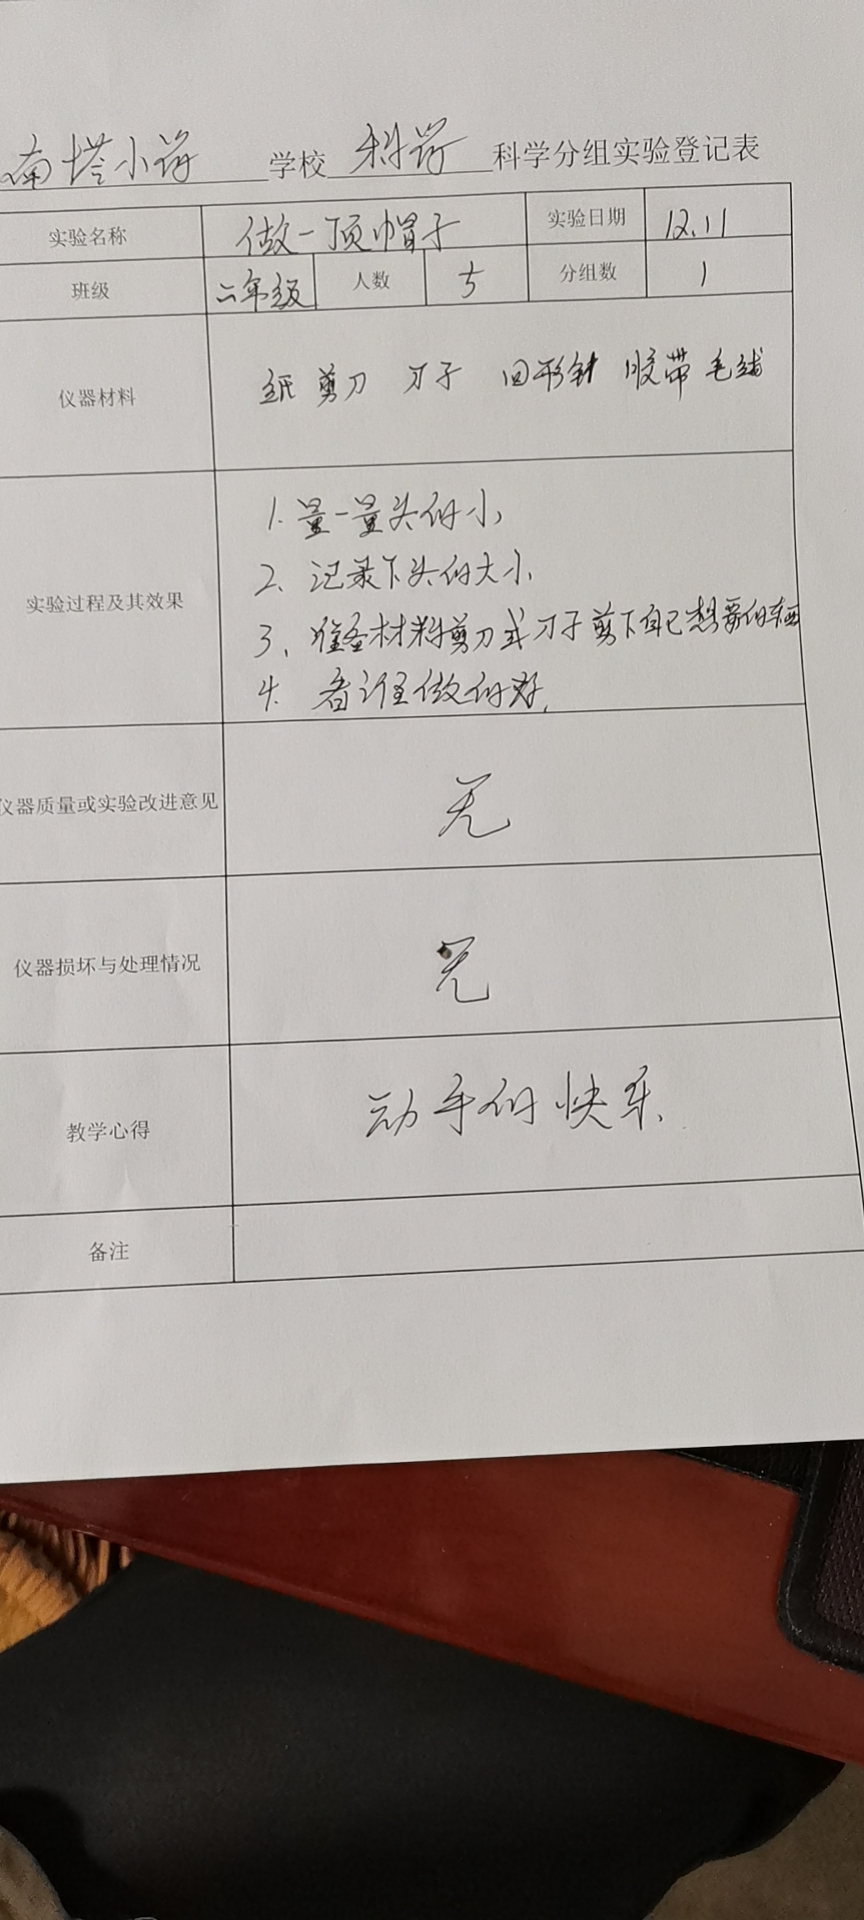 南塔小学 学校 科学 科学分组实验登记表
实验名称 做一顶帽子 实验日期 12.11
班级 二年级 人数 5 分组数 1
仪器材料 纸 剪刀 刀子 回形针 胶带 毛线
实验过程及其效果
1. 量一量头的小
2、记录下头的大小
3、准备材料剪刀或刀子剪下自己想要的
4. 看谁做的好.
仪器质量或实验改进意见 无
仪器损坏与处理情况 无
教学心得 动手的快乐.
备注